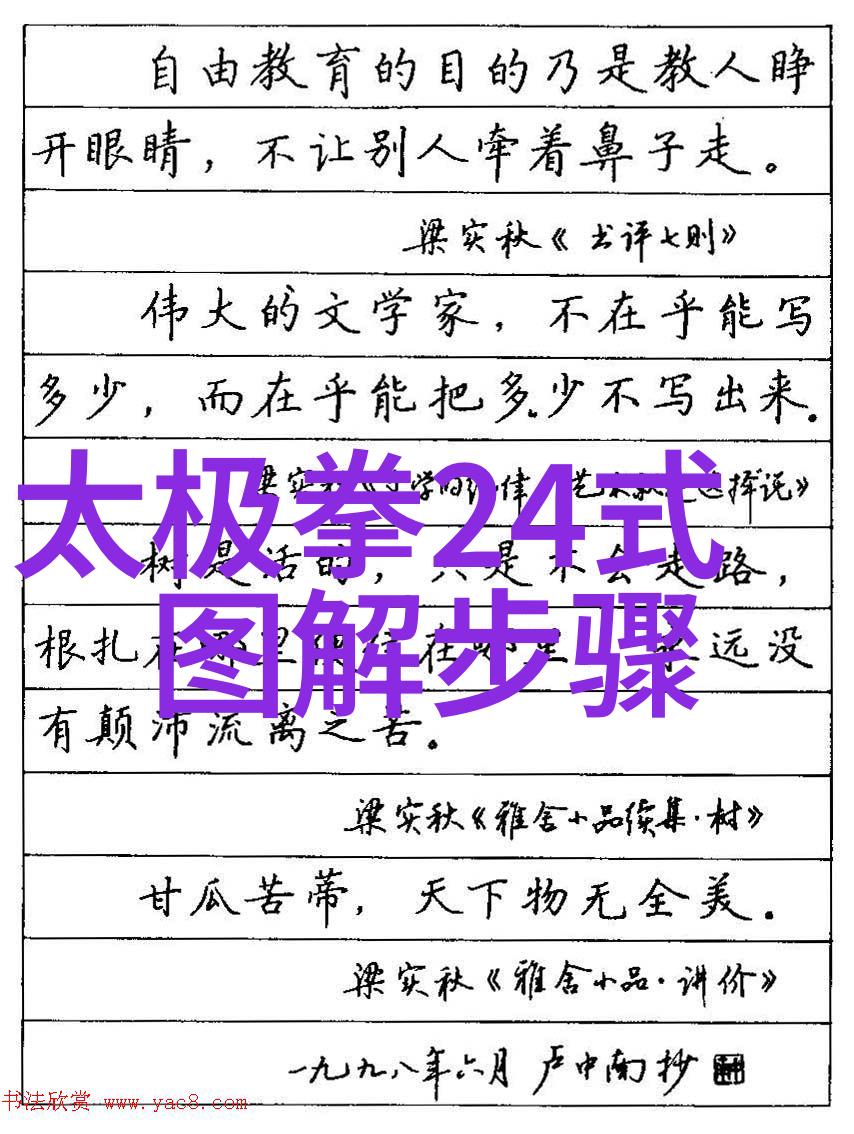 自由教育的目的乃是教人睁
开眼睛，不让别人牵着鼻子走。
梁实秋《书评七则》
伟大的文学家，不在乎能写
多少，而在乎能把多少不写出来。
梁实秋《文学的
挥说》
太极拳24式
树是活的，只是不会走路，
根扎在那里便住在那里
永远没
图解步骤
有颠沛流离之苦。
梁实秋《雅舍小品续集·树》
甘瓜苦蒂，天下物无全美。
梁实秋《雅舍小品·讲价》
一九九八年六月 卢中南抄
书法欣赏 www.yac8.com